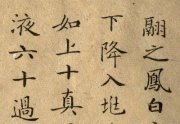 翮之鳳白
下降入地
如上十真
液六十過